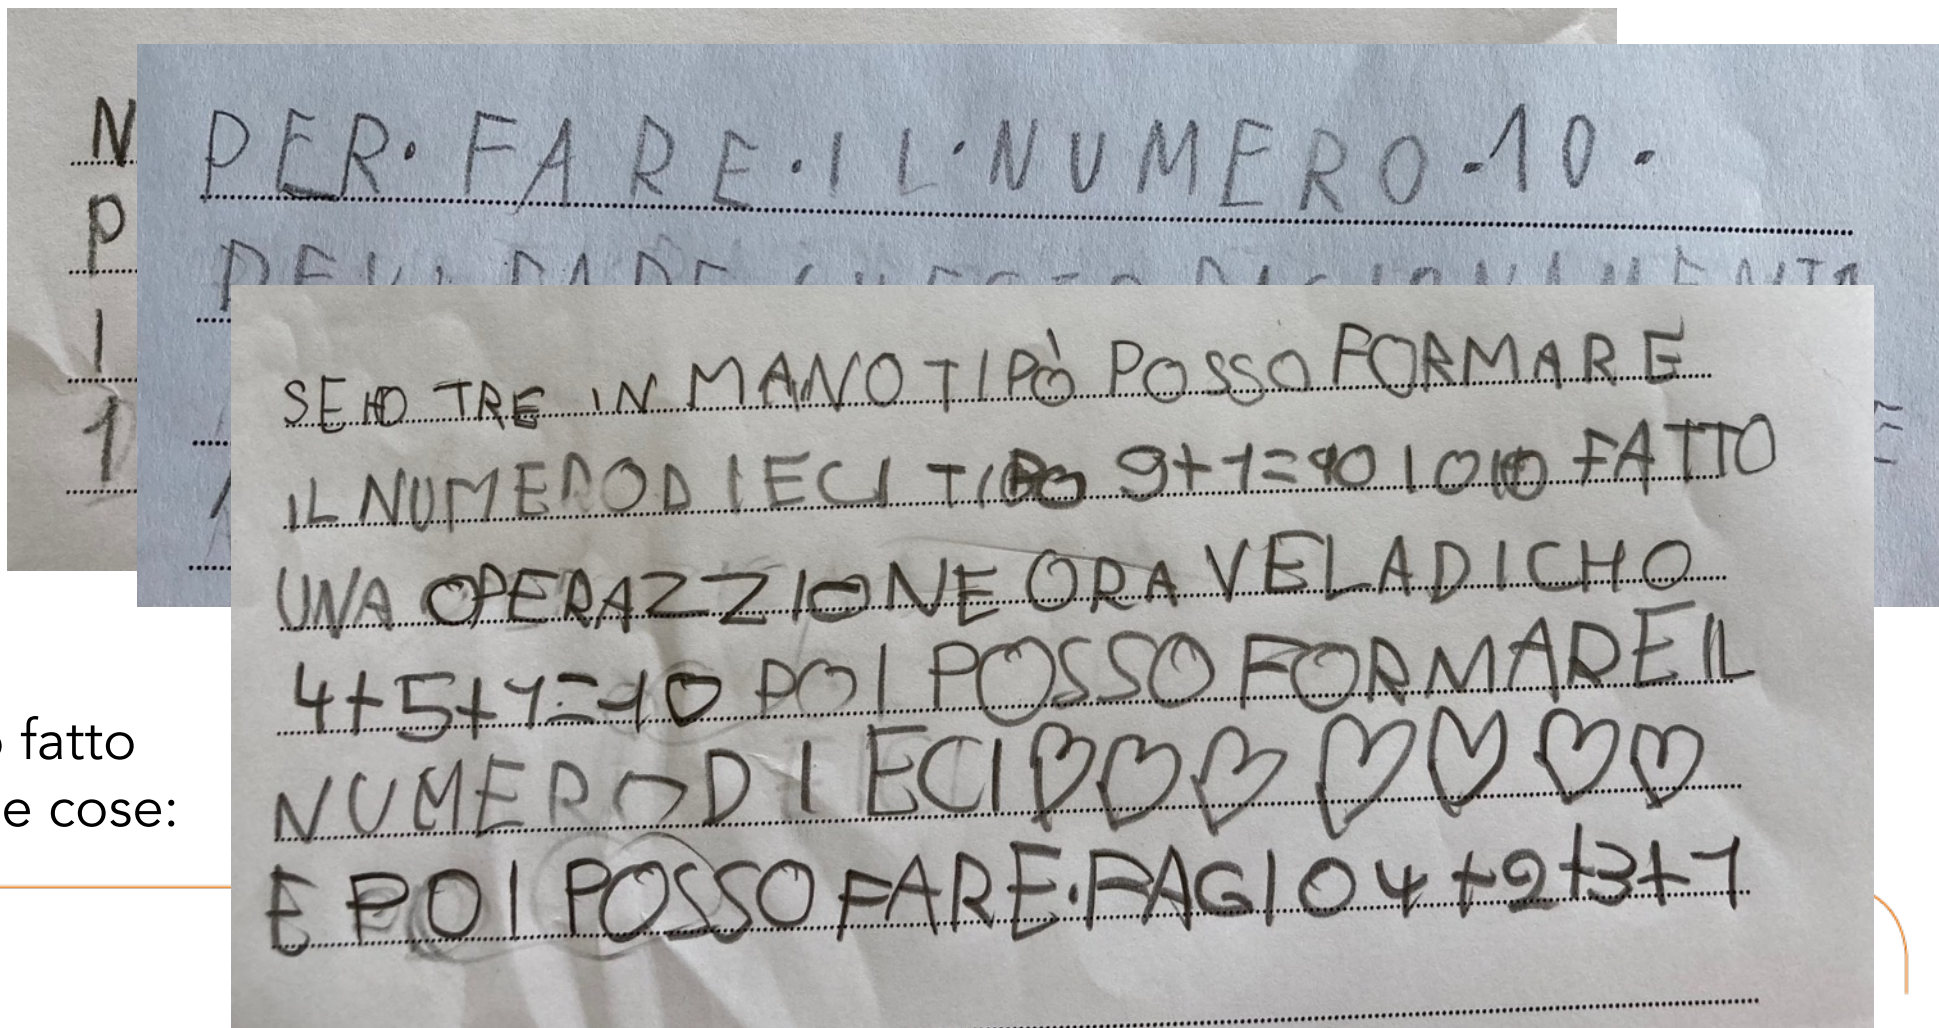 N
P
I
1
PER·FARE·IL·NUMERO·10·
SE HO TRE IN MANO TIPÒ POSSO FORMARE
IL NUMERO DIECI TIPO 9+1=10 IO HO FATTO
UNA OPERAZZIONE ORA VE LA DICHO
4+5+1=10 POI POSSO FORMARE IL
NUMERO DIECI
E POI POSSO FARE·FAGIO 4+2+3+1
fatto
e cose: